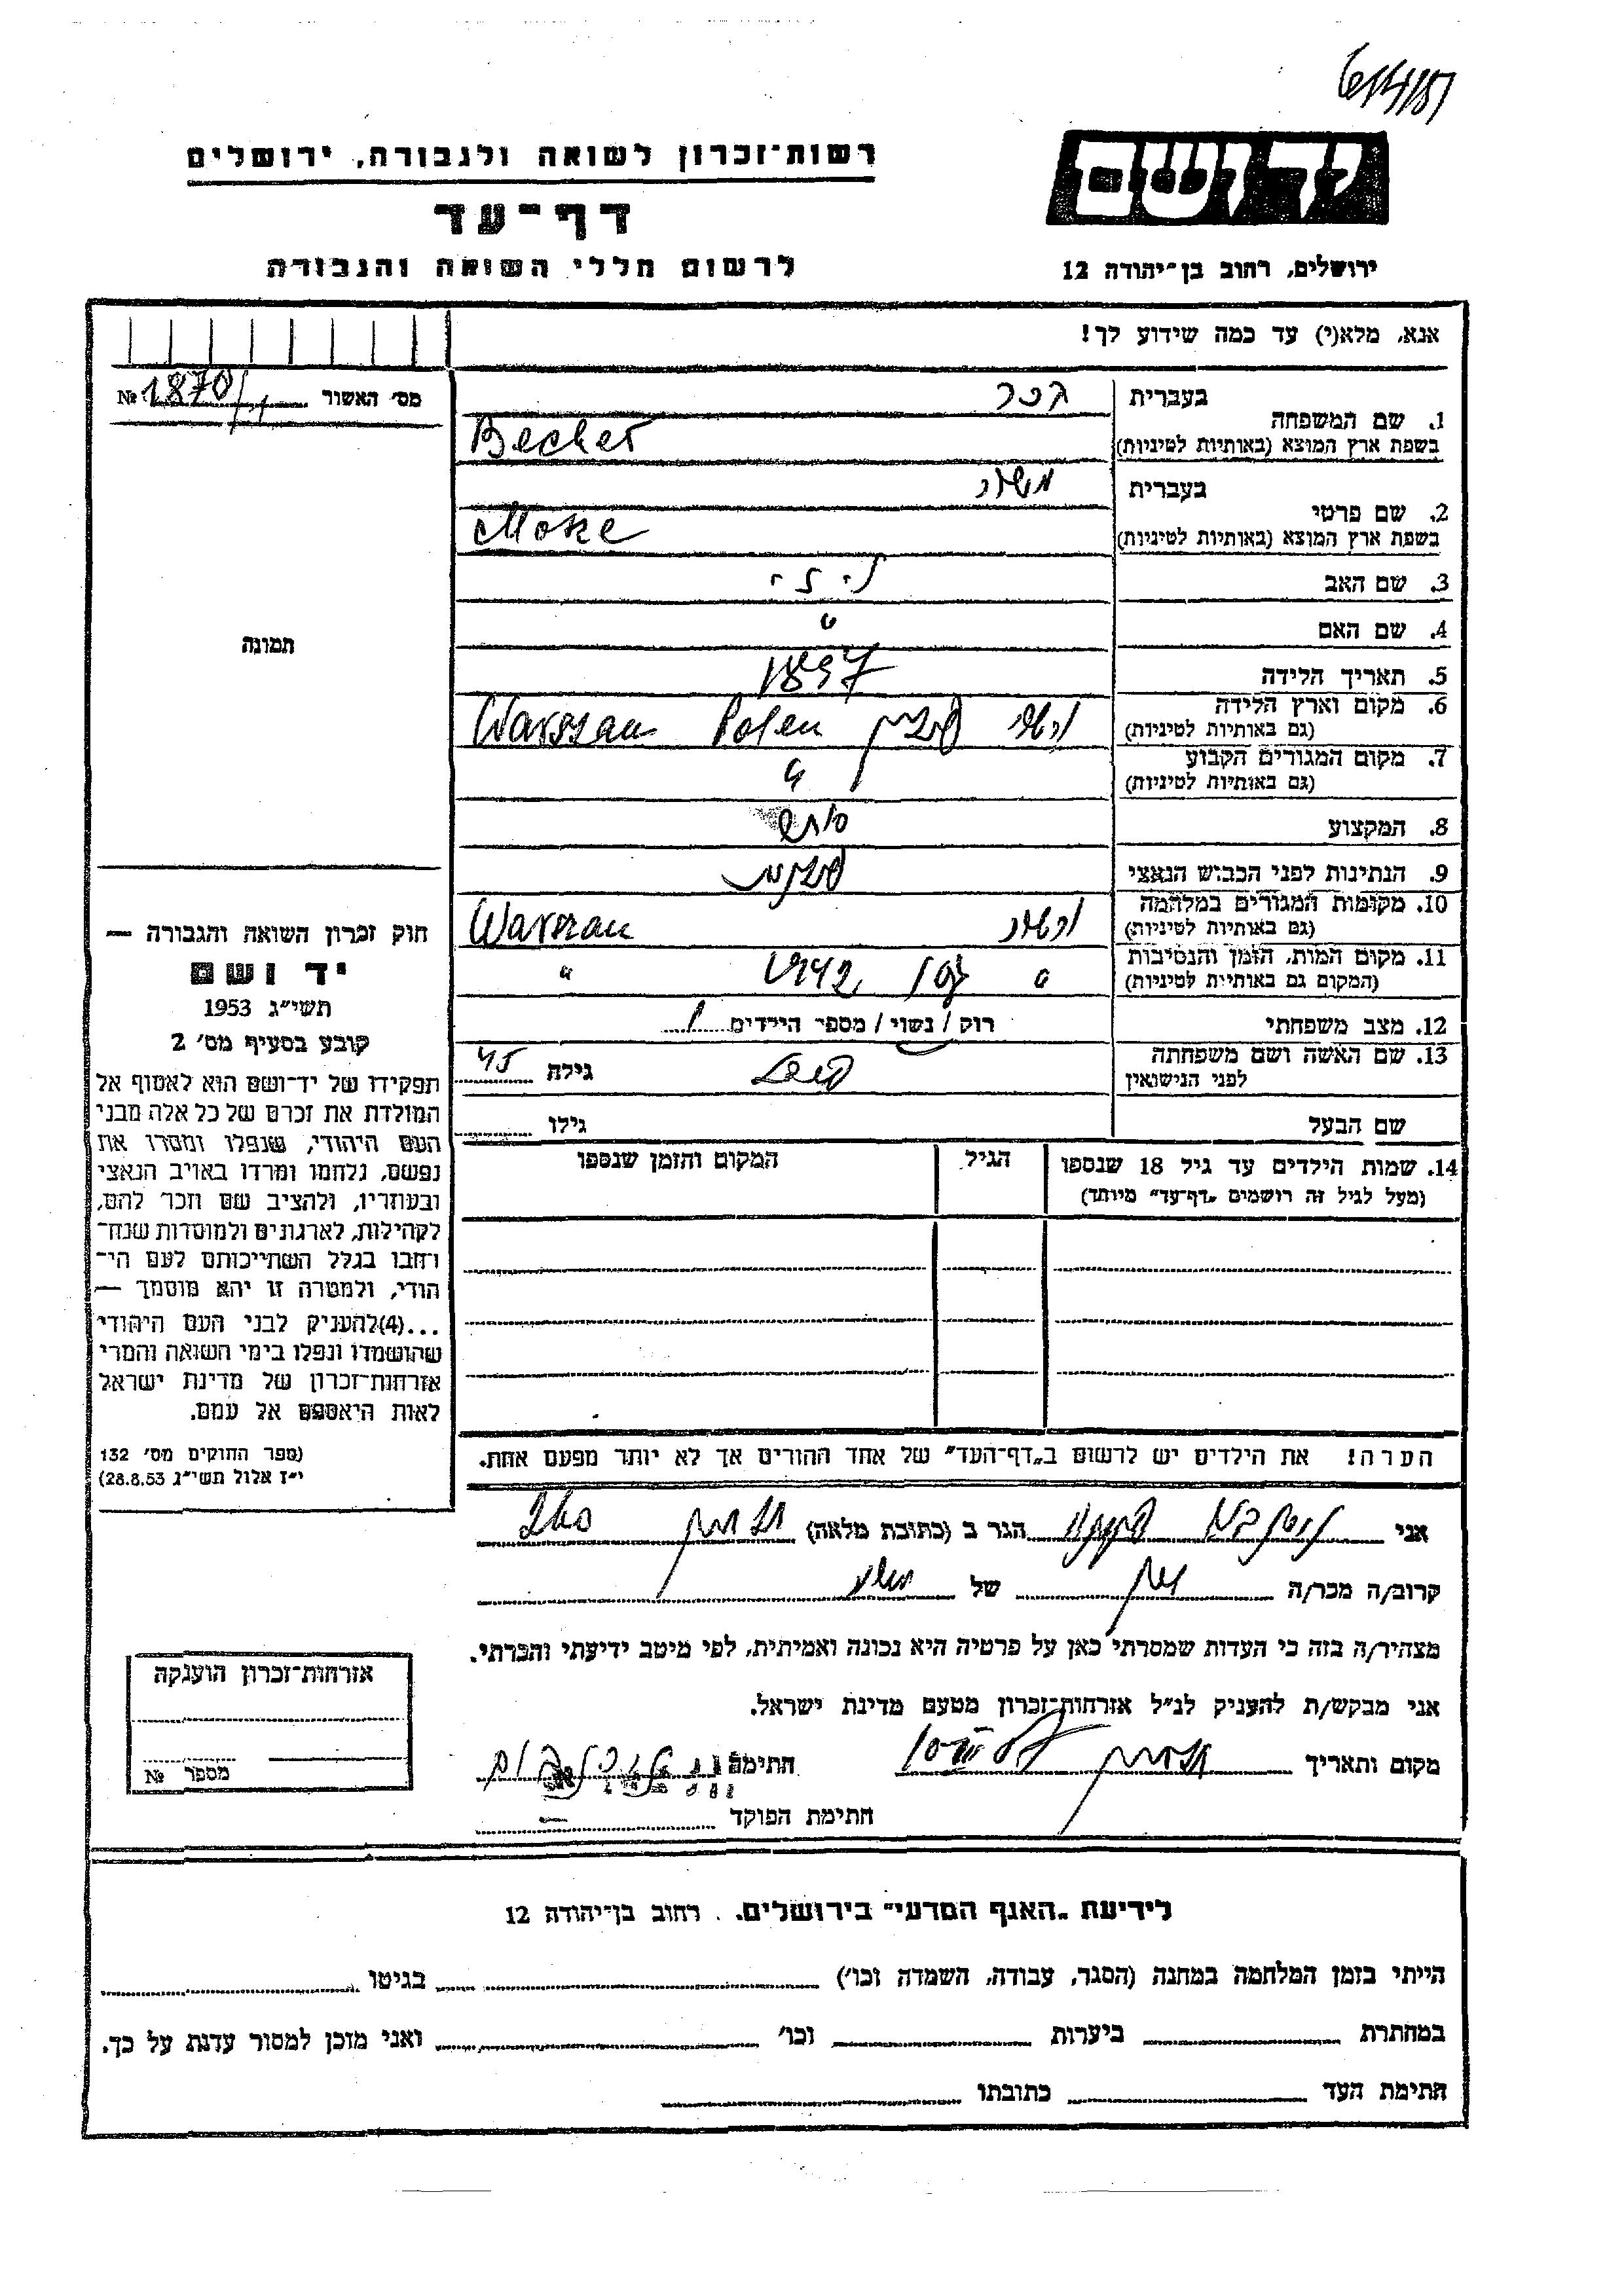 רשות־זכרון לשואה ולגבורה, ירושלים
דף־עד
לרשום חללי השואה והגבורה
יד ושם
ירושלים, רחוב בן־יהודה 12
אנא, מלא(י) עד כמה שידוע לך!
מס׳ האשור № 1870/
תמונה
1. שם המשפחה בעברית בכר
בשפת ארץ המוצא (באותיות לטיניות) Becher
2. שם פרטי בעברית משה
בשפת ארץ המוצא (באותיות לטיניות) Moske
3. שם האב
4. שם האם "
5. תאריך הלידה 1897
6. מקום וארץ הלידה (גם באותיות לטיניות) פולין Polen Warszau
7. מקום המגורים הקבוע (גם באותיות לטיניות) "
8. המקצוע סוחר
9. הנתינות לפני הכבוש הנאצי פולנית
10. מקומות המגורים במלחמה (גם באותיות לטיניות) ורשה Warszau
11. מקום המות, הזמן והנסיבות (המקום גם באותיות לטיניות) " 1942 "
12. מצב משפחתי רוק / נשוי / מספר הילדים 1
13. שם האשה ושם משפחתה לפני הנישואין גילה 45
שם הבעל גילו
14. שמות הילדים עד גיל 18 שנספו (מעל לגיל זה רושמים „דף־עד״ מיוחד)
הגיל
המקום והזמן שנספו
הערה! את הילדים יש לרשום ב„דף־העד״ של אחד ההורים אך לא יותר מפעם אחת.
חוק זכרון השואה והגבורה —
יד ושם
תשי״ג 1953
קובע בסעיף מס׳ 2
תפקידו של יד־ושם הוא לאסוף אל
המולדת את זכרם של כל אלה מבני
העם היהודי, שנפלו ומסרו את
נפשם, נלחמו ומרדו באויב הנאצי
ובעוזריו, ולהציב שם וזכר להם,
לקהילות, לארגונים ולמוסדות שנח־
רחבו בגלל השתייכותם לעם הי־
הודי, ולמטרה זו יהא מוסמך —
...(4)להעניק לבני העם היהודי
שהושמדו ונפלו בימי השואה והמרי
אזרחות־זכרון של מדינת ישראל
לאות היאספם אל עמם.
(ספר החוקים מס׳ 132
י״ז אלול תשי״ג 28.8.53)
אני הגר ב (כתובת מלאה)
קרוב/ה מכר/ה של
מצהיר/ה בזה כי העדות שמסרתי כאן על פרטיה היא נכונה ואמיתית, לפי מיטב ידיעתי והכרתי.
אני מבקש/ת להעניק לנ״ל אזרחות־זכרון מטעם מדינת ישראל.
מקום ותאריך חתימה
חתימת הפוקד
אזרחות־זכרון הוענקה
מספר №
לידיעת „האגף המדעי״ בירושלים, רחוב בן־יהודה 12
הייתי בזמן המלחמה במחנה (הסגר, עבודה, השמדה וכו׳) בגיטו
במחתרת ביערות וכו׳ ואני מוכן למסור עדות על כך.
חתימת העד כתובתו